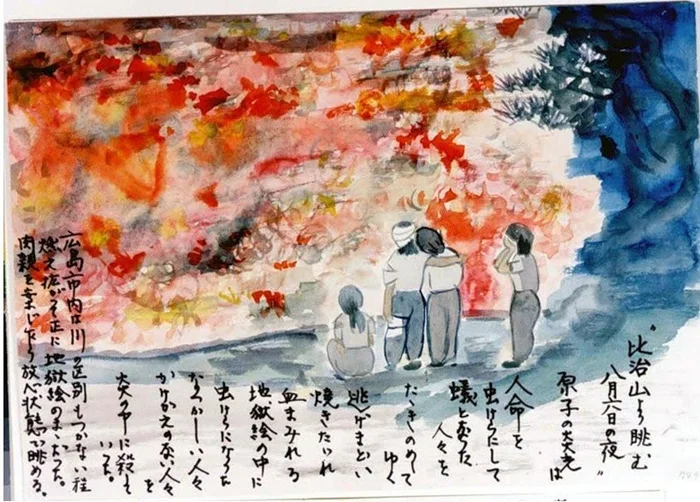 "比治山より眺む
八月六日の夜"
原子の炎光は
人命を
虫けらにして
人々を
たゝきのめして
ゆく
逃げまどい
焼きたゞれ
血まみれる
地獄絵の中に
虫けらになった
なつかしい人々
かけがえのない人々
を
炎の中に殺して
いった。
広島市内は川の区別もつかない程
燃え拡がり正に地獄絵のまゝだった。
肉親を案じ乍ら 状態で眺める。